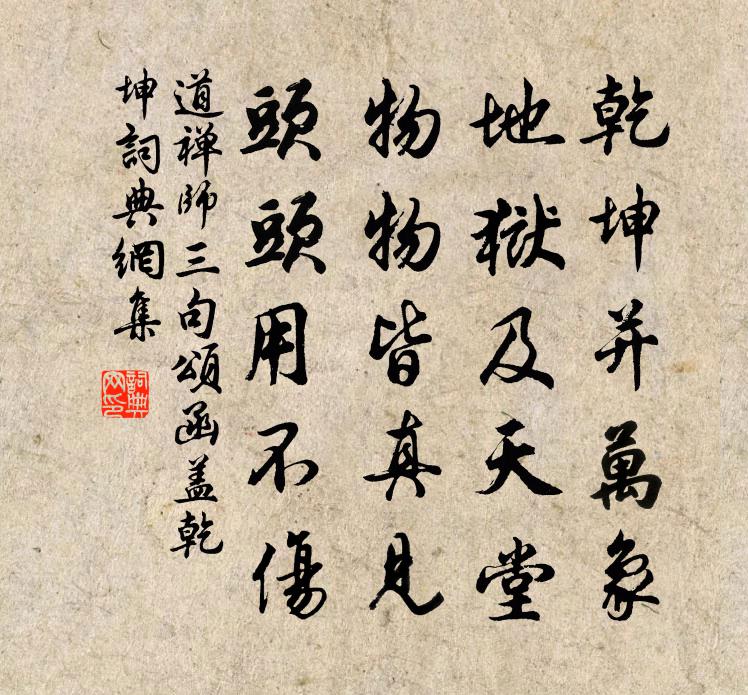 乾坤并萬象
地獄及天堂
物物皆真見
頭頭用不傷
道禅師三句頌函盖乾
坤詞典網集
詞典
网印